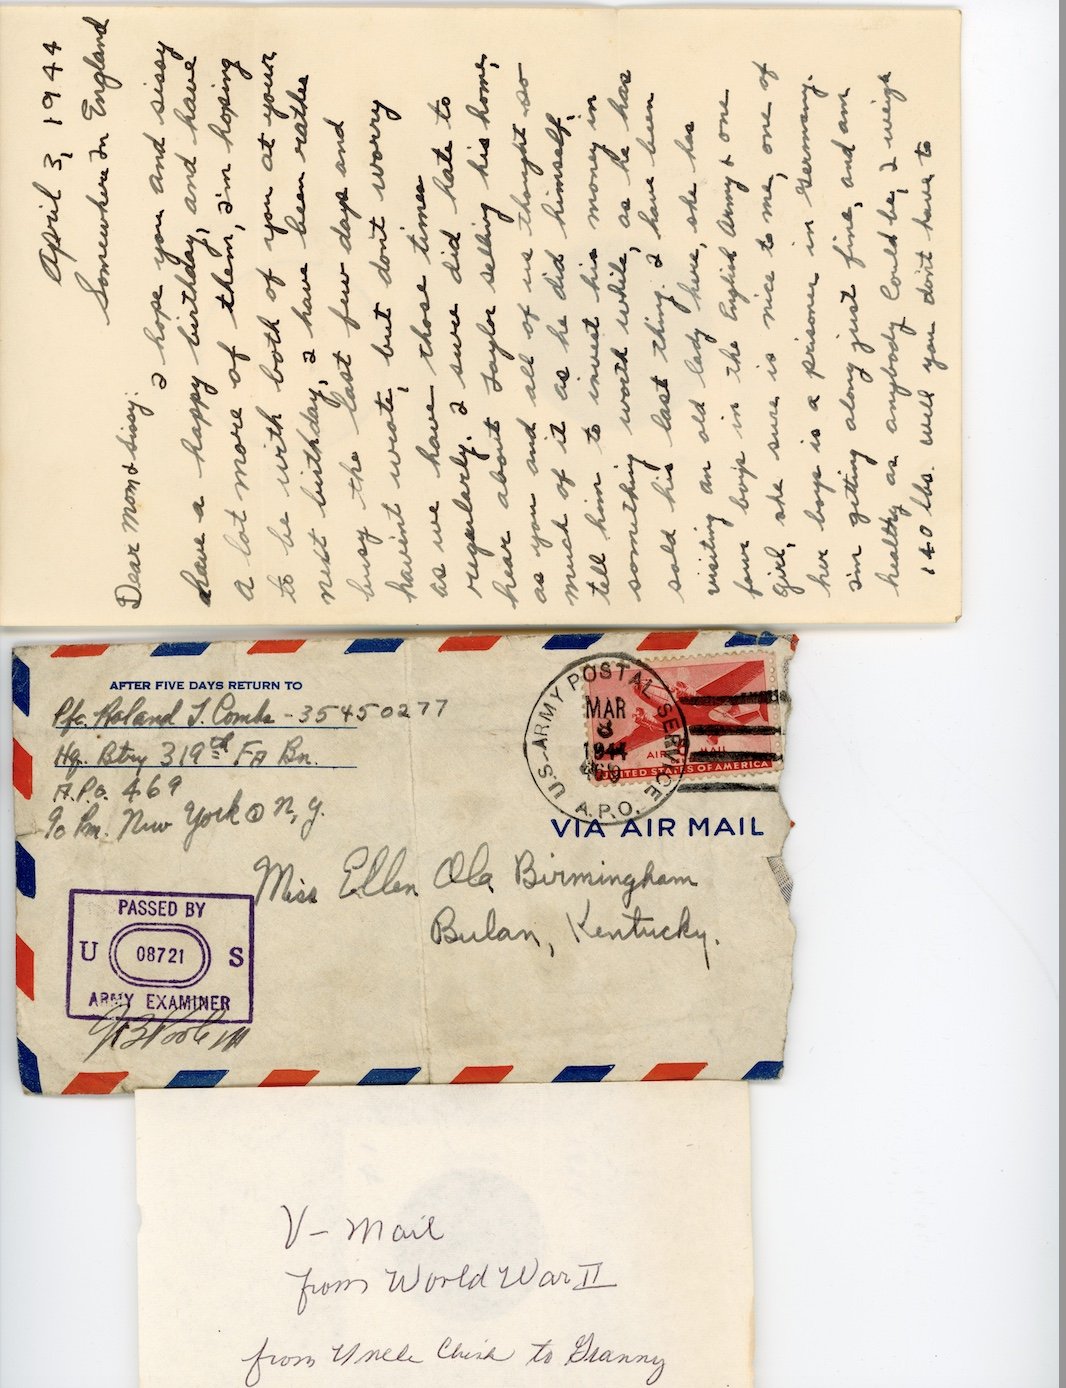 April 3, 1944
Somewhere In England
Dear Mom & Sissy:
I hope you and sissy
have a happy birthday, and have
a lot more of them, I'm hoping
to be with both of you at your
next birthday, I have been rather
busy the last few days and
havint wrote, but dont worry
as we have those times
regularly. I sure did hate to
hear about Taylor selling his home,
as you and all of us thought so
much of it as he did himself,
tell him to invest his money in
something worth while, as he has
sold his last thing. I have been
visiting an old lady here, she has
four boys in the English Army & one
girl, she sure is nice to me, one of
her boys is a prisoner in Germany.
I'm getting along just fine, and am
healthy as anybody could be, I weigh
140 lbs. well you don't have to
AFTER FIVE DAYS RETURN TO
Pfc. Roland T. Combs - 35450277
Hq. Btry 319th FA Bn.
A.P.O. 469
% Pm. New York N, Y.
U.S. ARMY POSTAL SERVICE
MAR
3
1944
469
A.P.O.
AIR MAIL
UNITED STATES OF AMERICA
VIA AIR MAIL
Miss Ellen Ola Birmingham
Bulan, Kentucky.
PASSED BY
U 08721 S
ARMY EXAMINER
V-Mail
from World War II
from Uncle to Granny